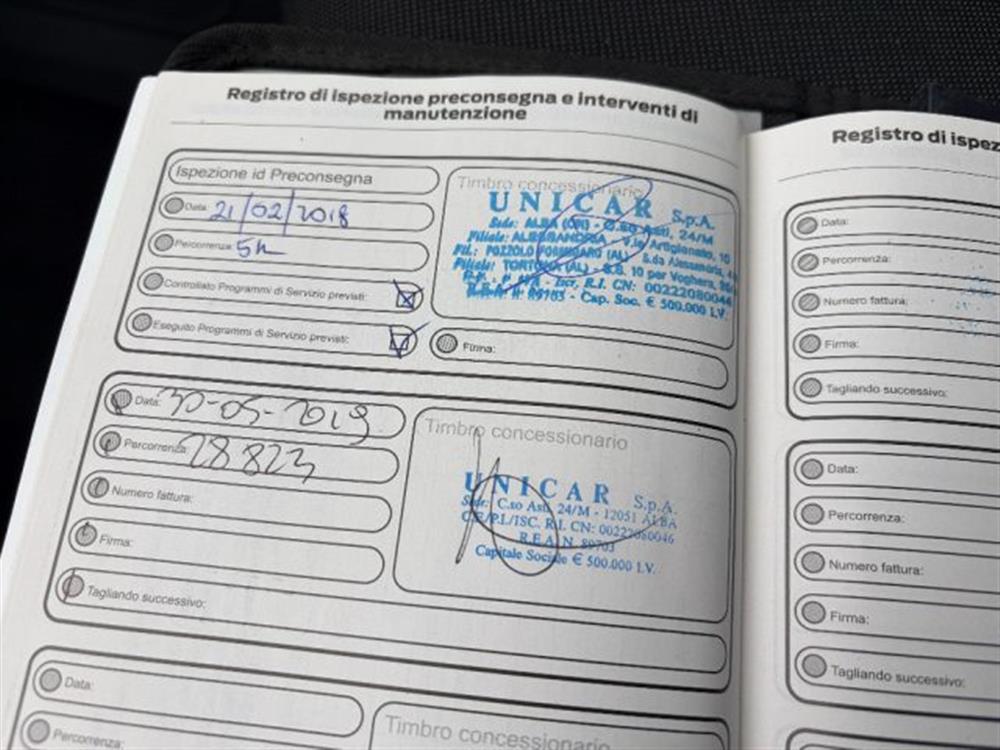 Registro di ispezione preconsegna e interventi di
manutenzione
Ispezione id Preconsegna
Data: 21/02/2018
Percorrenza: 5k
Controllato Programmi di Servizio previsti:
Eseguito Programmi di Servizio previsti:
Timbro concessionario
UNICAR S.p.A.
Sede: ALBA (CN) - C.so Asti, 24/M
Filiale: ALESSANDRIA - V.le Artigianato, 10
FIL.: POZZOLO FORMIGARO (AL) - S.da Alessandria,
Filiale: TORTONA (AL) - S.S. 10 per Voghera,
Iscr. R.I. CN: 00222080046
R.E.A. N. 89703 - Cap. Soc. € 500.000 I.V.
Firma:
Data: 30-05-2019
Percorrenza: 28823
Numero fattura:
Firma:
Tagliando successivo:
Timbro concessionario
UNICAR S.p.A.
Sede: C.so Asti, 24/M - 12051 ALBA
C.F./P.I./ISC. R.I. CN: 00222080046
R.E.A. N. 89703
Capitale Sociale € 500.000 I.V.
Data:
Percorrenza:
Timbro concessionario
Registro di
Data:
Percorrenza:
Numero fattura:
Firma:
Tagliando successivo:
Data:
Percorrenza:
Numero fattura:
Firma:
Tagliando successivo: